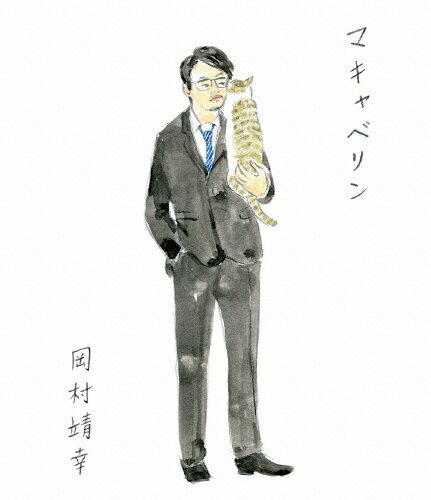 マキャベリン
岡村靖幸